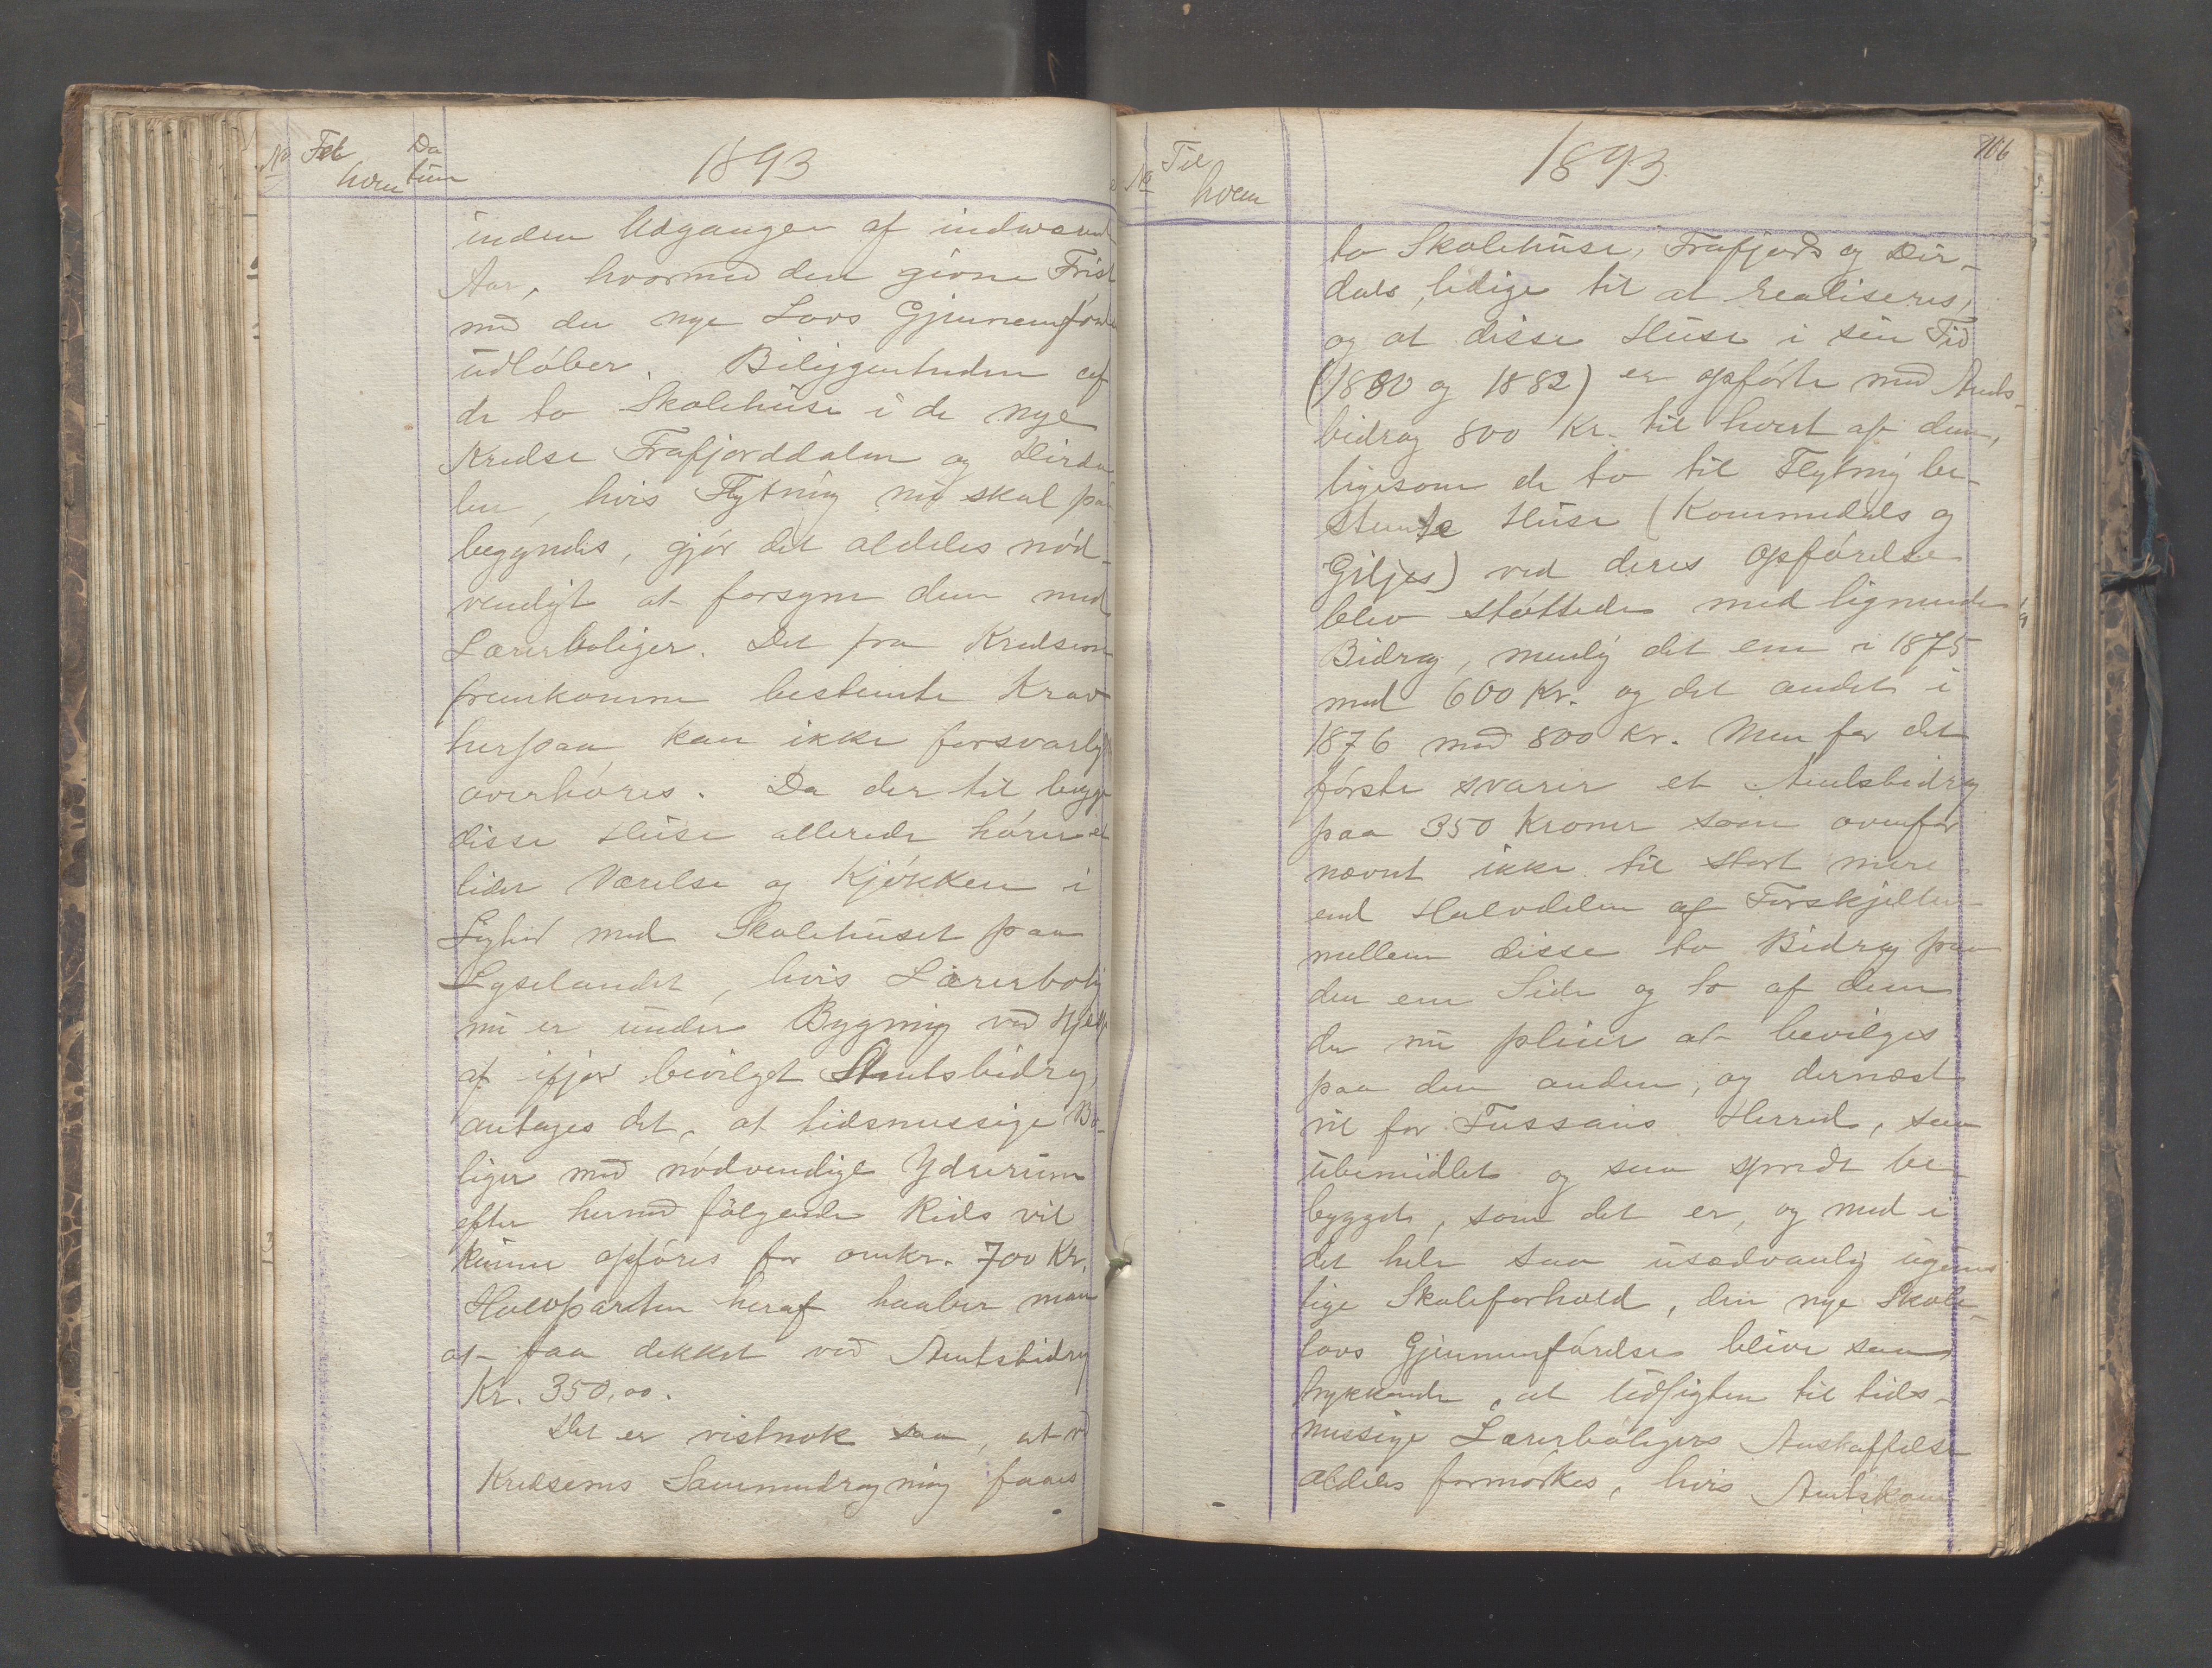 No Til hvem Datum 1893
inden Udgangen af indeværende
Aar, hvormed den givne Frist
med den nye Lovs Gjennemførelse
udløber. Beliggenheden af
de to Skolehuse i de nye
Kredse Frafjorddalen og Dirda-
len, hvis Flytning nu skal paa-
begyndes, gjør det aldeles nød-
vendigt at forsyne dem med
Lærerboliger. Det fra Kredsene
fremkomne bestemte Krav
herpaa kan ikke forsvarlig
overhøres. Da der til begge
disse Huse allerede hører et
lidet Værelse og Kjøkken i
Lighed med Skolehuset paa
Lyselandet, hvis Lærerbolig
nu er under Bygning ved Hjelp
af ifjor bevilget Amtsbidrag,
antages det, at tidsmessige Bo-
liger med nødvendige Yderrum
efter hermed følgende Rids vil
kunne opføres for omkr. 700 Kr.
Halvparten heraf haaber man
at faa dekket ved Amtsbidrag
Kr. 350,00.
Det er vistnok saa, at ved
Kredsenes Sammendragning faaes
No Til hvem 1893. 106
to Skolehuse, Frafjords og Dir-
dals, ledige til at realiseres,
og at disse Huse i sin Tid
(1880 og 1882) er opførte med Amts-
bidrag 800 Kr. til hvert af dem,
ligesom de to til Flytning be-
stemte Huse (Kommedals og
Giljes) ved deres Opførelse
blev støttede med lignende
Bidrag, nemlig det ene i 1875
med 600 Kr. og det andet i
1876 med 800 Kr. Men for det
første svarer et Amtsbidrag
paa 350 Kroner som ovenfor
nævnt ikke til stort mere
end Halvdelen af Forskjellen
mellem disse to Bidrag paa
den ene Side og to af dem
der nu pleier at bevilges
paa den anden, og dernæst
vil for Fossans Herred, saa
ubemidlet og saa spredt be-
bygget, som det er, og med i
det hele saa usædvanlig ugunst
lige Skoleforhold, den nye Skole-
lovs Gjennemførelse blive saa
trykkende, at Udsigten til tids-
messige Lærerboligers Anskaffelse
aldeles formørkes, hvis Amtskom